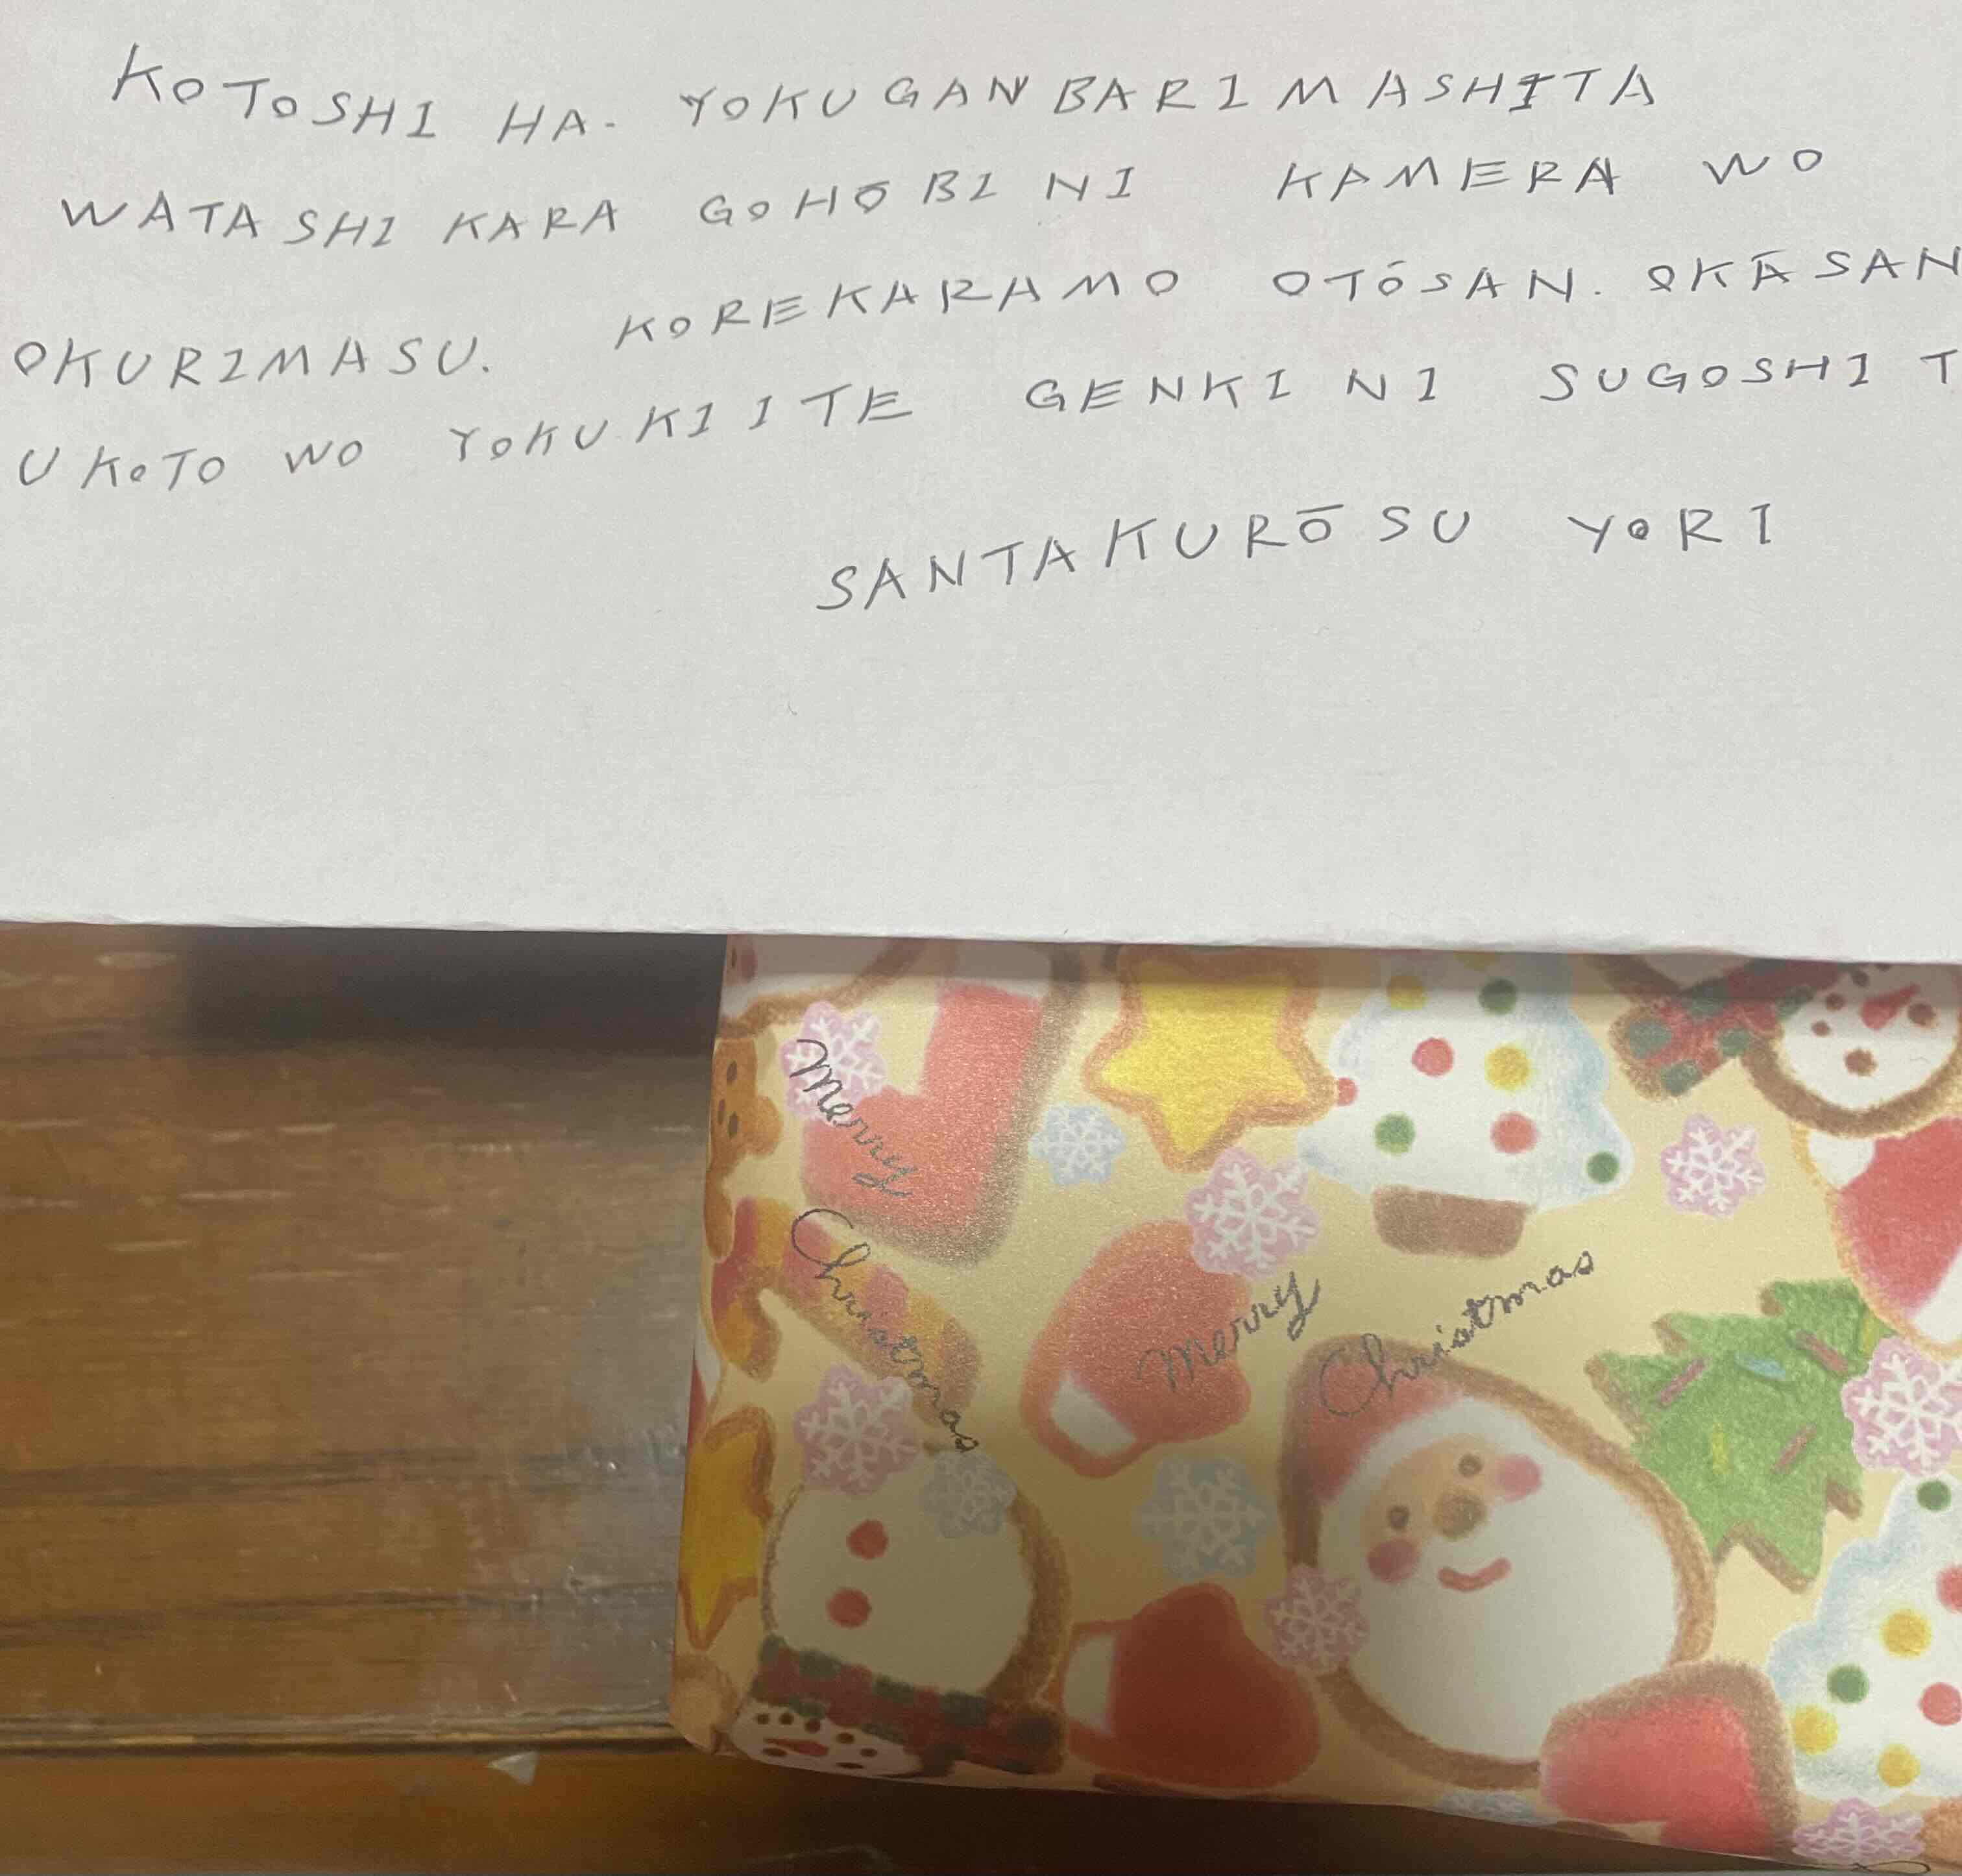 KOTOSHI HA. YOKUGANBARIMASHITA
WATASHI KARA GOHŌBI NI KAMERA WO
OKURIMASU. KOREKARAMO OTŌSAN. OKĀSAN
UKOTO WO YOKU KIITE GENKI NI SUGOSHI T
SANTAKURŌSU YORI
Merry
Christmas
Merry
Christmas